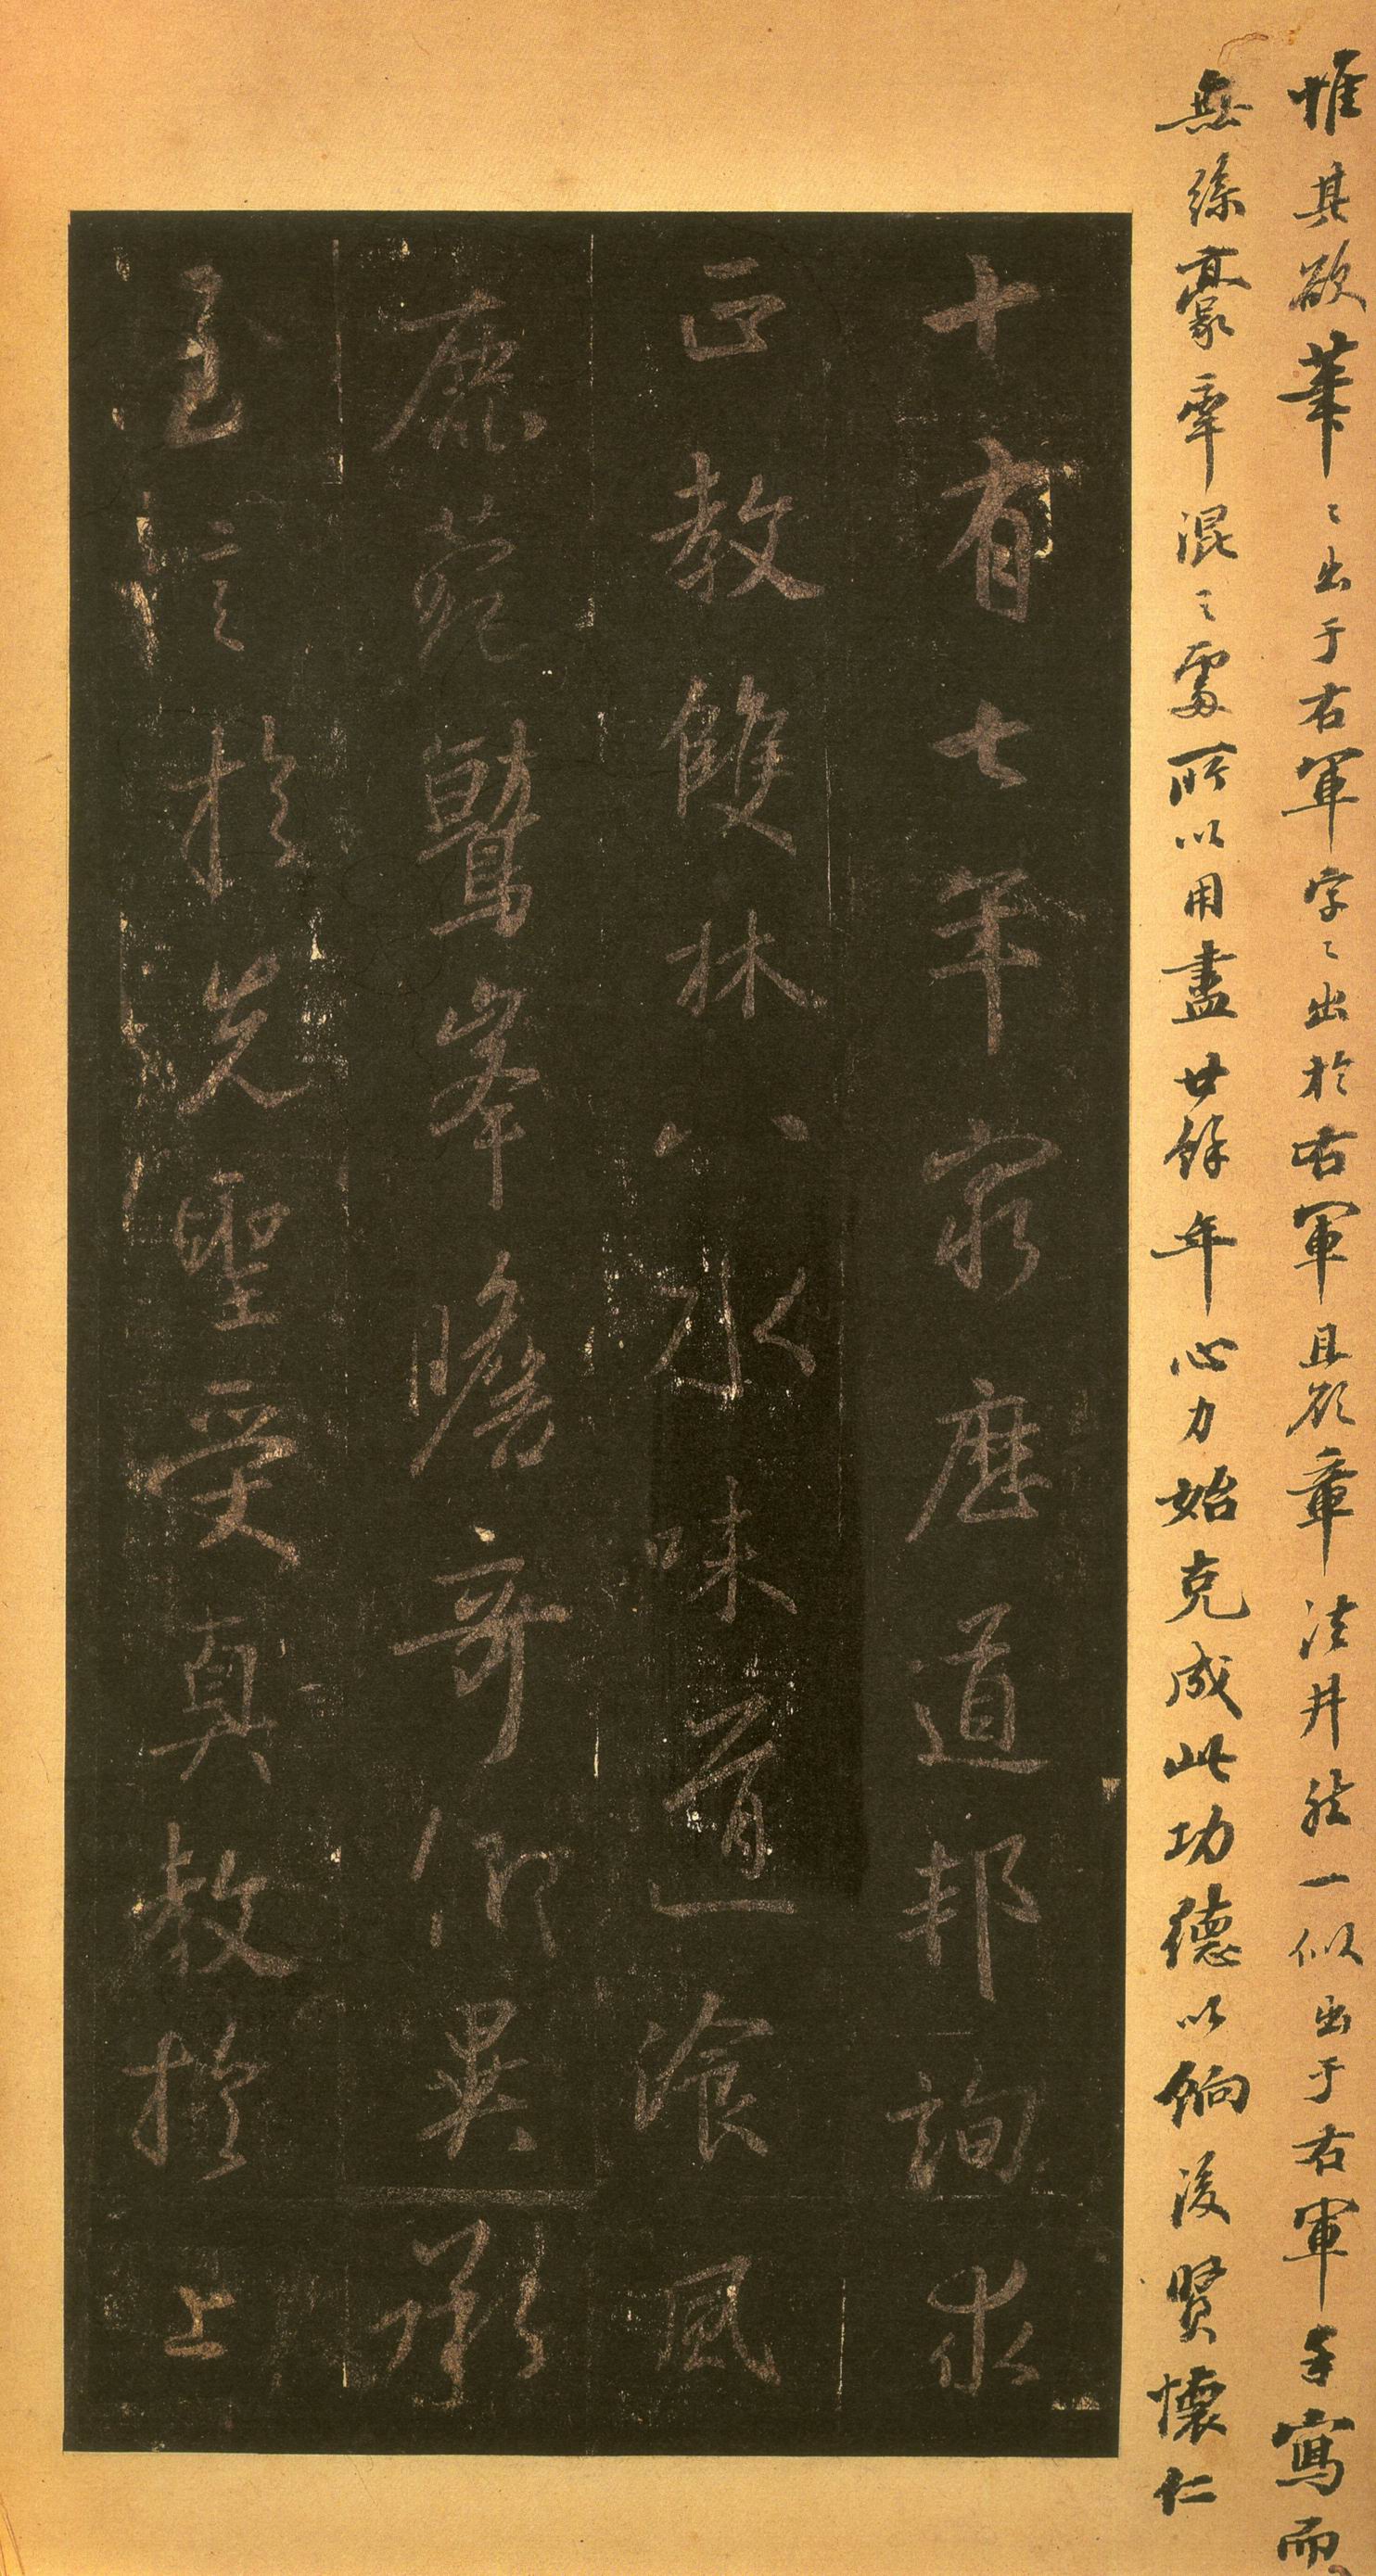 惟其欲筆〻出于右軍字〻出於右軍且欲章法井然一似出于右軍手寫而
無絲豪牽混〻處所以用盡廿餘年心力始克成此功德以餉後賢懷仁
十有七年窮歷道邦詢求
正教雙林八水味道飡風
鹿菀鷲峯瞻奇仰異承
至言於先聖受真教於上